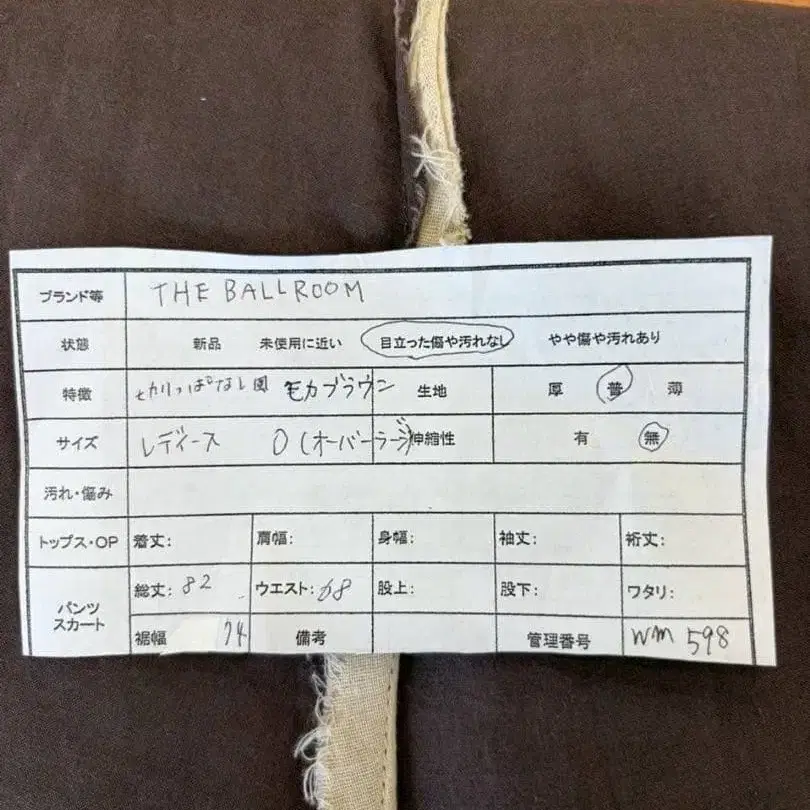 ブランド等 THE BALLROOM
状態 新品 未使用に近い 目立った傷や汚れなし やや傷や汚れあり
特徴 切りっぱなし風 モカブラウン 生地 厚 普 薄
サイズ レディース 0(オーバーラージ) 伸縮性 有 無
汚れ・傷み
トップス・OP 着丈: 肩幅: 身幅: 袖丈: 裄丈:
パンツ スカート 総丈: 82 ウエスト: 68 股上: 股下: ワタリ:
裾幅 74 備考 管理番号 WM 598